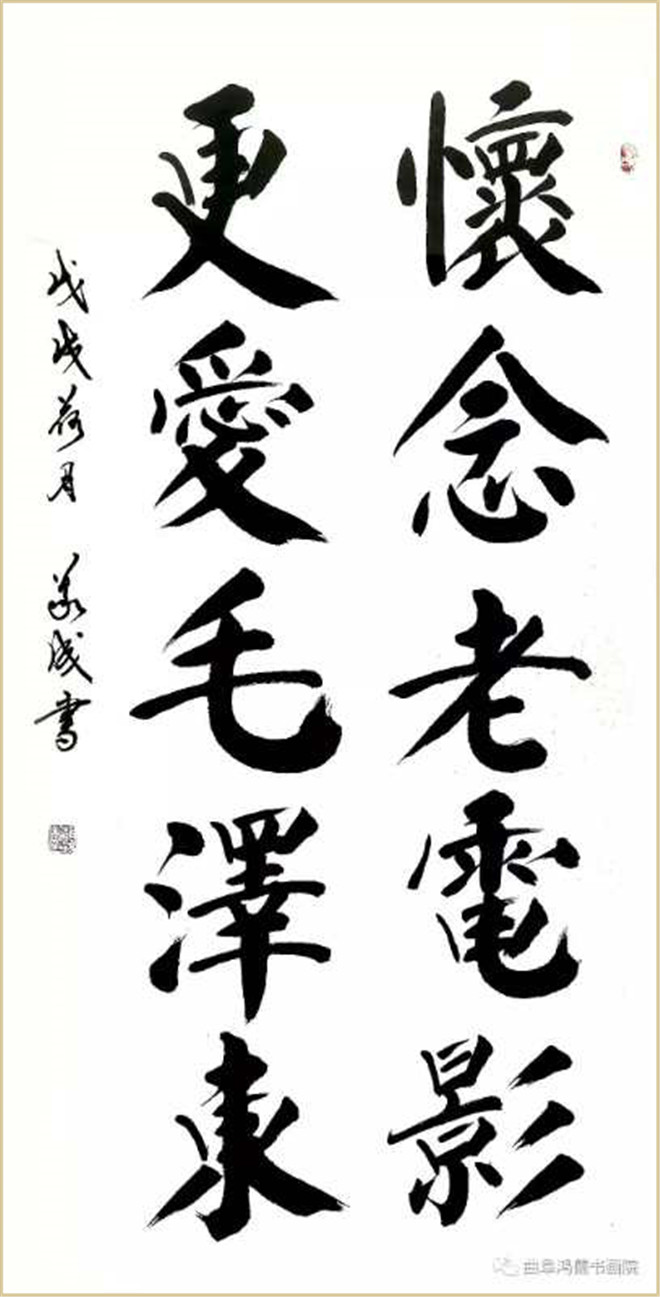 懷念老電影
更愛毛澤東
戊戌荷月 義成書
曲阜鸿儒书画院